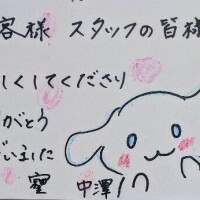 客様 スタッフの皆様
しくしてくださり
がとう
いました
窪 中澤